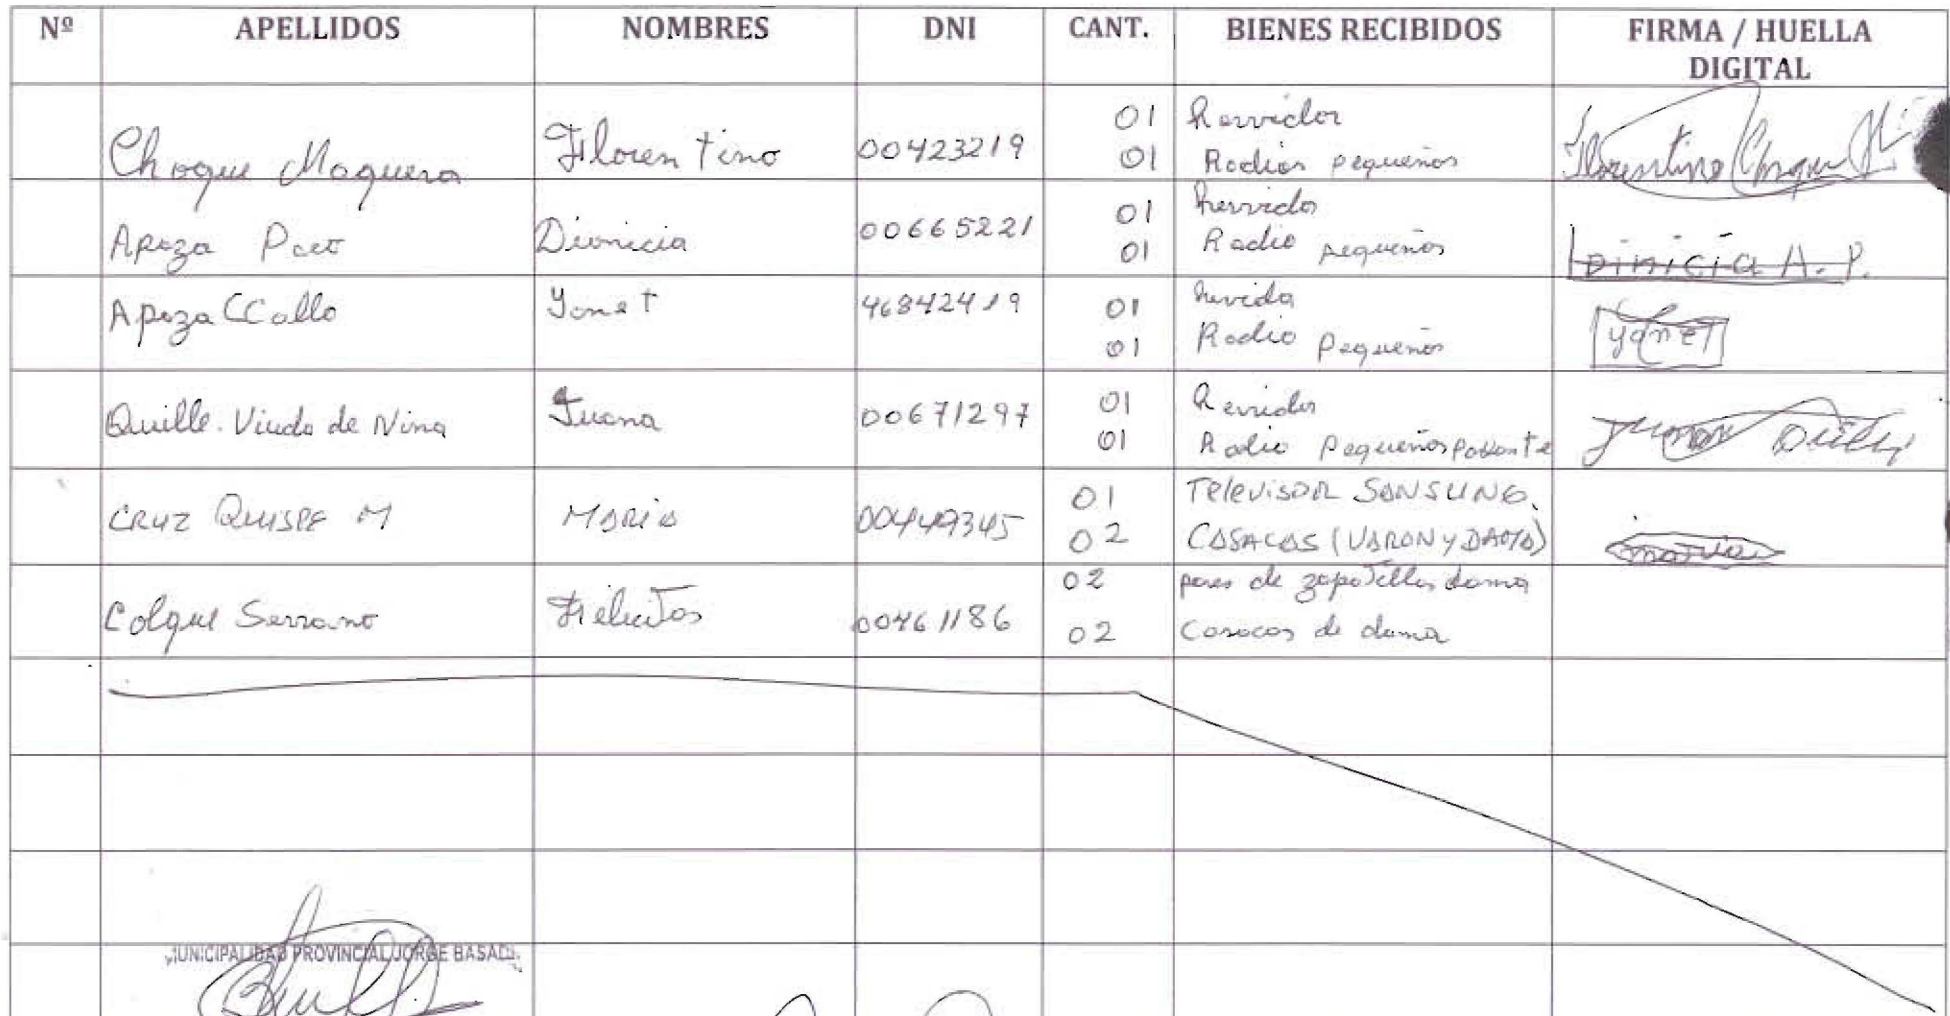 Nº APELLIDOS NOMBRES DNI CANT. BIENES RECIBIDOS FIRMA / HUELLA DIGITAL
Choque Maquera Florentino 00423219 01 hervidor
01 Radios pequeños
Florentino Choque
Apaza Paco Dionicia 00665221 01 hervidor
01 Radio pequeños
Dinicia A. P.
Apaza CCallo Yonet 46842419 01 hervido
01 Radio pequeños
yonet
Quille. Viuda de Nina Juana 00671297 01 hervidor
01 Radio pequeños
Juana Quille
CRUZ QUISPE M MARIA 01 TELEVISOR SANSUNG.
02 CASACAS (VARON y DAMA)
maria
Colque Serrano Felicitas 00461186 02 pares de zapatillas dama
02 Casacas de dama
MUNICIPALIDAD PROVINCIAL JORGE BASAD